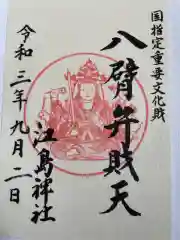 国指定重要文化財
八臂弁財天
江島神社
令和三年九月二日